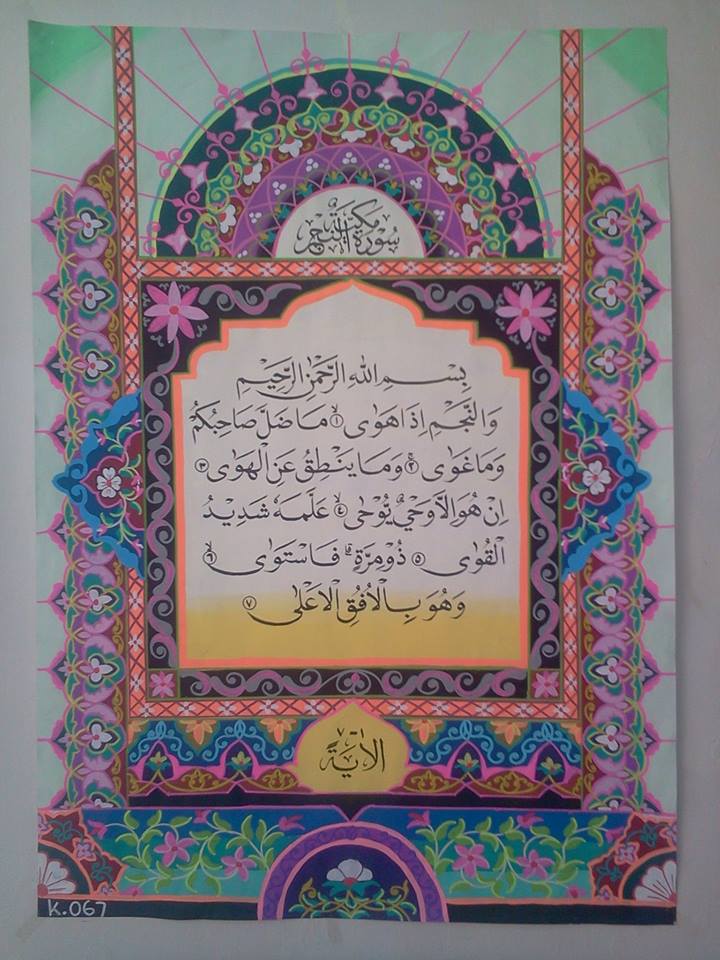 سُورَةُ النَّجْمِ مَكِّيَّةٌ
بِسْمِ اللهِ الرَّحْمٰنِ الرَّحِيْمِ
وَالنَّجْمِ اِذَا هَوٰى ۙ١ مَا ضَلَّ صَاحِبُكُمْ
وَمَا غَوٰى ۚ٢ وَمَا يَنْطِقُ عَنِ الْهَوٰى ۗ٣
اِنْ هُوَ اِلَّا وَحْيٌ يُّوْحٰى ۙ٤ عَلَّمَهٗ شَدِيْدُ
الْقُوٰى ۙ٥ ذُوْ مِرَّةٍۗ فَاسْتَوٰى ۙ٦
وَهُوَ بِالْاُفُقِ الْاَعْلٰى ٧
الْاٰيَةَ
K.067